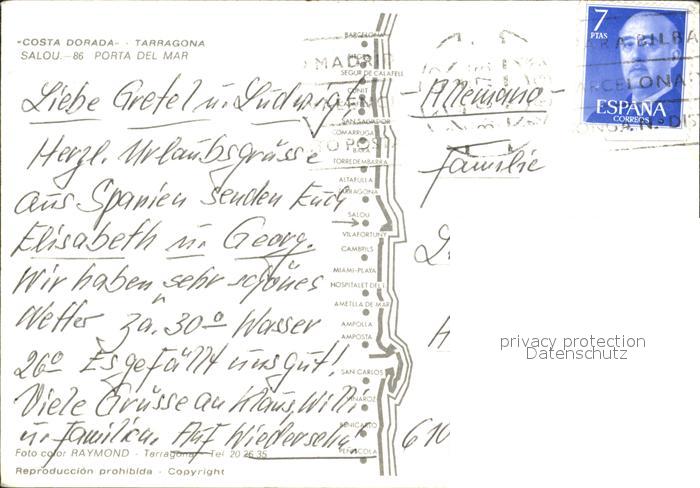 "COSTA DORADA" - TARRAGONA
SALOU.-86 PORTA DEL MAR
Liebe Gretel u. Ludwig!
Herzl. Urlaubsgrüsse
aus Spanien senden Euch
Elisabeth u. Georg.
Wir haben sehr schönes
Wetter za. 30° Wasser
26° Es gefällt uns gut!
Viele Grüsse an Klaus, Willi
u. Familien. Auf Wiedersehn!
Foto color RAYMOND - Tarragona - Tel 20 26 35
Reproducción prohibida - Copyright
BARCELONA
SEGUR DE CALAFELL
CUNIT
SAN SALVADOR
COMARRUGA
BARA
TORREDEMBARRA
ALTAFULLA
TARRAGONA
SALOU
VILAFORTUNY
CAMBRILS
MIAMI-PLAYA
HOSPITALET DEL I.
AMETLLA DE MAR
AMPOLLA
AMPOSTA
SAN CARLOS
VINAROZ
BENICARLO
PEÑISCOLA
MADRID
-Allemania-
Familie
L
H
610
7
PTAS
ESPAÑA
CORREOS
BILBA
BARCELONA
ZONGA. N.º DIST
privacy protection
Datenschutz